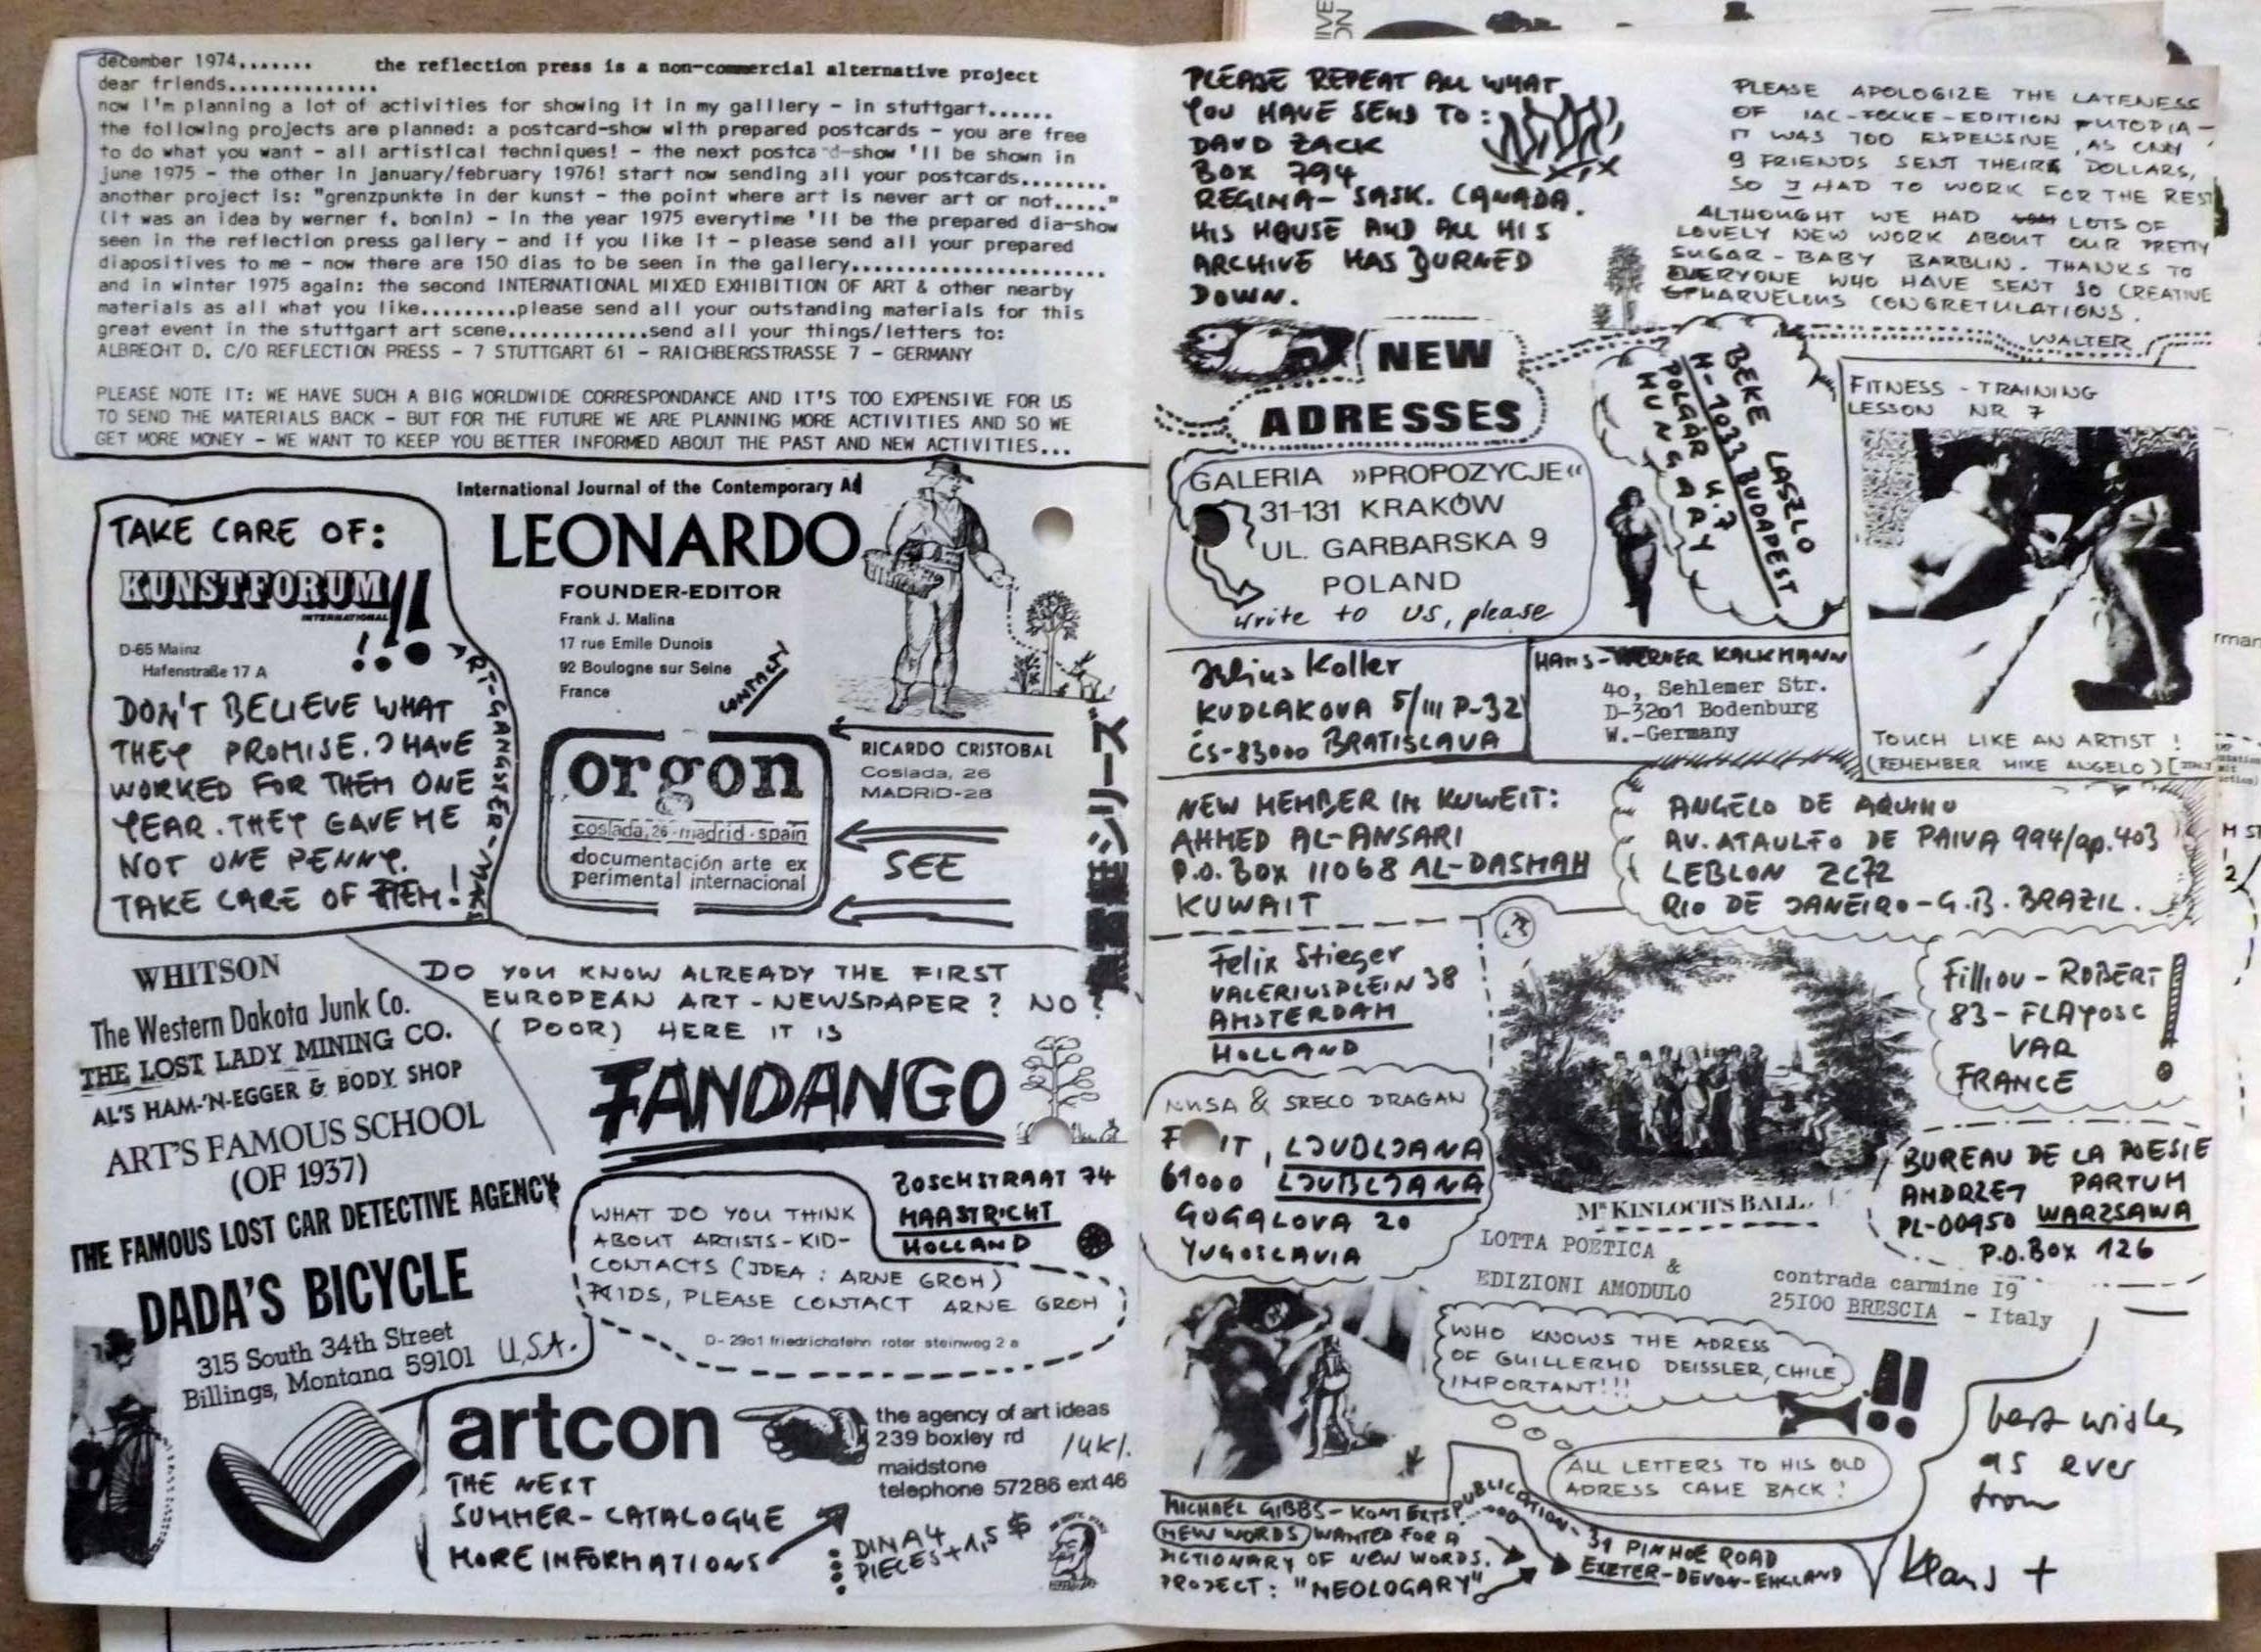 december 1974....... the reflection press is a non-commercial alternative project
dear friends..............
now I'm planning a lot of activities for showing it in my galllery - in stuttgart......
the following projects are planned: a postcard-show with prepared postcards - you are free
to do what you want - all artistical techniques! - the next postcard-show 'll be shown in
june 1975 - the other in january/february 1976! start now sending all your postcards........
another project is: "grenzpunkte in der kunst - the point where art is never art or not....."
(it was an idea by werner f. bonin) - in the year 1975 everytime 'll be the prepared dia-show
seen in the reflection press gallery - and if you like it - please send all your prepared
diapositives to me - now there are 150 dias to be seen in the gallery.......................
and in winter 1975 again: the second INTERNATIONAL MIXED EXHIBITION OF ART & other nearby
materials as all what you like.........please send all your outstanding materials for this
great event in the stuttgart art scene.............send all your things/letters to:
ALBRECHT D. C/O REFLECTION PRESS - 7 STUTTGART 61 - RAICHBERGSTRASSE 7 - GERMANY
PLEASE NOTE IT: WE HAVE SUCH A BIG WORLDWIDE CORRESPONDANCE AND IT'S TOO EXPENSIVE FOR US
TO SEND THE MATERIALS BACK - BUT FOR THE FUTURE WE ARE PLANNING MORE ACTIVITIES AND SO WE
GET MORE MONEY - WE WANT TO KEEP YOU BETTER INFORMED ABOUT THE PAST AND NEW ACTIVITIES...
TAKE CARE OF:
KUNSTFORUM!!
INTERNATIONAL
D-65 Mainz
Hafenstraße 17 A
DON'T BELIEVE WHAT
THEY PROMISE. I HAVE
WORKED FOR THEM ONE
YEAR. THEY GAVE ME
NOT ONE PENNY.
TAKE CARE OF THEM!
ART-GANGSTER-MAKS
International Journal of the Contemporary Ar
LEONARDO
FOUNDER-EDITOR
Frank J. Malina
17 rue Emile Dunois
92 Boulogne sur Seine
France
CONTACT
orgon
coslada, 26 · madrid · spain
documentación arte ex
perimental internacional
RICARDO CRISTOBAL
Coslada, 26
MADRID-28
SEE
シリーズ
WHITSON
The Western Dakota Junk Co.
THE LOST LADY MINING CO.
AL'S HAM-'N-EGGER & BODY SHOP
ART'S FAMOUS SCHOOL
(OF 1937)
THE FAMOUS LOST CAR DETECTIVE AGENCY
DADA'S BICYCLE
315 South 34th Street
Billings, Montana 59101 U.S.A.
DO YOU KNOW ALREADY THE FIRST
EUROPEAN ART-NEWSPAPER? NO?
(POOR) HERE IT IS
FANDANGO
BOSCHSTRAAT 74
MAASTRICHT
HOLLAND
WHAT DO YOU THINK
ABOUT ARTISTS-KID-
CONTACTS (IDEA: ARNE GROH)
KIDS, PLEASE CONTACT ARNE GROH
D-2901 friedrichsfehn roter steinweg 2 a
artcon
the agency of art ideas
239 boxley rd /uk/.
maidstone
telephone 57286 ext 46
THE NEXT
SUMMER-CATALOGUE
MORE INFORMATIONS
DINA4
PIECES+1,5 $
PLEASE REPEAT ALL WHAT
YOU HAVE SEND TO:
DAVID ZACK
BOX 794
REGINA - SASK. CANADA.
HIS HOUSE AND ALL HIS
ARCHIVE HAS BURNED
DOWN.
PLEASE APOLOGIZE THE LATENESS
OF IAC-FOCKE-EDITION FUTOPIA -
IT WAS TOO EXPENSIVE, AS ONLY
9 FRIENDS SENT THEIRE DOLLARS,
SO I HAD TO WORK FOR THE REST
ALTHOUGHT WE HAD LOTS OF
LOVELY NEW WORK ABOUT OUR PRETTY
SUGAR-BABY BARBLIN. THANKS TO
EVERYONE WHO HAVE SENT SO CREATIVE
MARVELOUS CONGRETULATIONS.
WALTER
NEW
ADRESSES
GALERIA »PROPOZYCJE«
31-131 KRAKÓW
UL. GARBARSKA 9
POLAND
write to us, please
BEKE LASZLO
H-1033 BUDAPEST
POLGÁR U.7
HUNGARY
FITNESS - TRAINING
LESSON NR 7
TOUCH LIKE AN ARTIST!
(REMEMBER MIKE ANGELO)
Julius Koller
KUDLAKOVA 5/III P-32
ČS-83000 BRATISLAVA
HANS-WERNER KALKMANN
40, Sehlemer Str.
D-3201 Bodenburg
W.-Germany
NEW MEMBER IN KUWEIT:
AHMED AL-ANSARI
P.O. BOX 11068 AL-DASMAH
KUWAIT
ANGELO DE AQUINO
AV. ATAULFO DE PAIVA 994/ap.403
LEBLON ZC72
RIO DE JANEIRO-G.B. BRAZIL.
Felix Stieger
VALERIUSPLEIN 38
AMSTERDAM
HOLLAND
Filliou - ROBERT
83 - FLAYOSC
VAR
FRANCE
NUSA & SRECO DRAGAN
LJUBLJANA
61000 LJUBLJANA
GOGALOVA 20
YUGOSLAVIA
Mr KINLOCH'S BALL.
BUREAU DE LA POESIE
ANDRZEJ PARTUM
PL-00950 WARZSAWA
P.O.BOX 126
LOTTA POETICA
&
EDIZIONI AMODULO
contrada carmine I9
25I00 BRESCIA - Italy
WHO KNOWS THE ADRESS
OF GUILLERMO DEISSLER, CHILE
IMPORTANT!!!
!!
ALL LETTERS TO HIS OLD
ADRESS CAME BACK!
MICHAEL GIBBS - KONTEXTS PUBLICATION - 31 PINHOE ROAD
EXETER-DEVON-ENGLAND
NEW WORDS WANTED FOR A
DICTIONARY OF NEW WORDS.
PROJECT: "NEOLOGARY"
best wishes
as ever
from
Klaus +